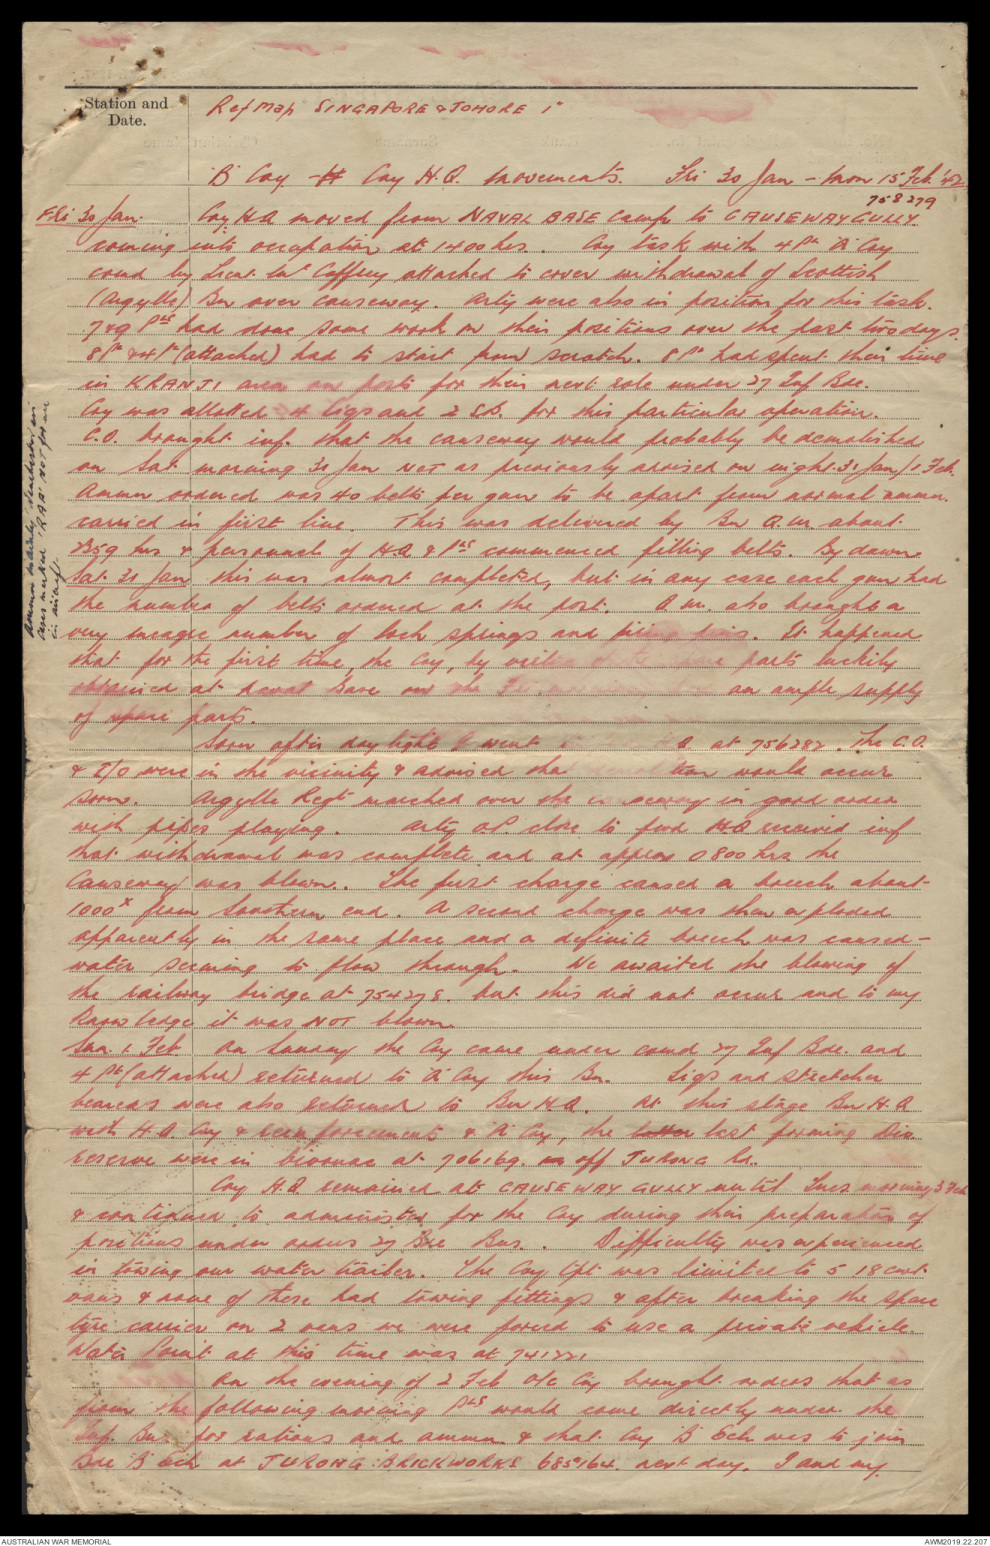 Station and
Date.
Ref Map SINGAPORE & JOHORE 1"
'B' Coy - Coy H.Q. movements. Fri 30 Jan - Mon 15 Feb '42
758279
Fri 30 Jan. Coy H.Q moved from NAVAL BASE Camp to CAUSEWAY GULLY
coming into occupation at 1400 hrs. Coy task with 4 Pn 'A' Coy
comd by Lieut McCaffrey attached to cover withdrawal of Scottish
(Argylls) Bn over causeway. Arty were also in position for this task.
7&9 Pns had done some work on their positions over the past two days.
8 Pn & 4 Pn (attached) had to start from scratch. 8 Pn had spent their time
in KRANJI area on posts for their next role under 27 Inf Bde.
Coy was allotted 4 Sigs and 2 S.B. for this particular operation.
C.O. brought inf. that the causeway would probably be demolished
on Sat morning 31 Jan NOT as previously advised on night 31 Jan/1 Feb.
Ammn ordered was 40 belts per gun to be apart from normal ammn.
carried in first line. This was delivered by Bn Q.M. about
2359 hrs & personnel of H.Q & Pns commenced filling belts. By dawn
Sat 31 Jan this was almost completed, but in any case each gun had
the number of belts ordered at the post. Q.M. also brought a
very meagre number of lock springs and firing pins. It happened
that for the first time, the Coy, by parts luckily
obtained at Naval Base on the had an ample supply
of spare parts.
Soon after daylight I went at 756282. The C.O.
& I/O were in the vicinity & advised that demolition would occur
soon. Argylls Regt marched over the causeway in good order
with pipes playing. Arty O.P. close to fwd H.Q received inf
that withdrawal was complete and at approx 0800 hrs the
Causeway was blown. The first charge caused a breech about
1000x from Southern end. A second charge was then exploded
apparently in the same place and a definite breech was caused -
water seeming to flow through. We awaited the blowing of
the railway bridge at 754278. but this did not occur and to my
knowledge it was NOT blown
Sun. 1 Feb. On Sunday the Coy came under comd 27 Inf Bde. and
4 Pn (attached) returned to 'A' Coy this Bn. Sigs and stretcher
bearers were also returned to Bn H.Q. At this stage Bn H.Q
with H.Q. Coy & reinforcements & 'A' Coy, the latter last forming Div
Reserve were in bivouac at 706169. off JURONG Rd.
Coy H.Q. remained at CAUSEWAY GULLY until Tues morning 3 Feb
& continued to administer for the Coy during their preparation of
positions under orders 27 Bde Bns. Difficulty was experienced
in towing our water trailer. The Coy tpt was limited to 5 18 cwt.
vans & none of these had towing fittings & after breaking the spare
tyre carrier on 2 vans we were forced to use a private vehicle.
Water Point at this time was at 741221
On the evening of 2 Feb o/c Coy brought orders that as
from the following morning Pns would come directly under the
Inf. Bns for rations and ammn & that Coy 'B' Ech was to join
Bde 'B' Ech at JURONG BRICKWORKS 685164. next day. I and my
Ammn mainly in
cases marked 'RAA' NOT for use
in aircraft
AUSTRALIAN WAR MEMORIAL
AWM2019.22.207